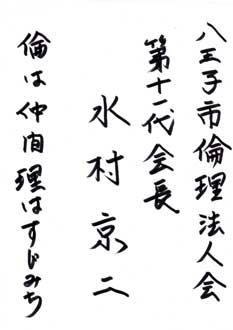 八王子市倫理法人会
第十一代会長
水村京二
倫は仲間理はすじみち